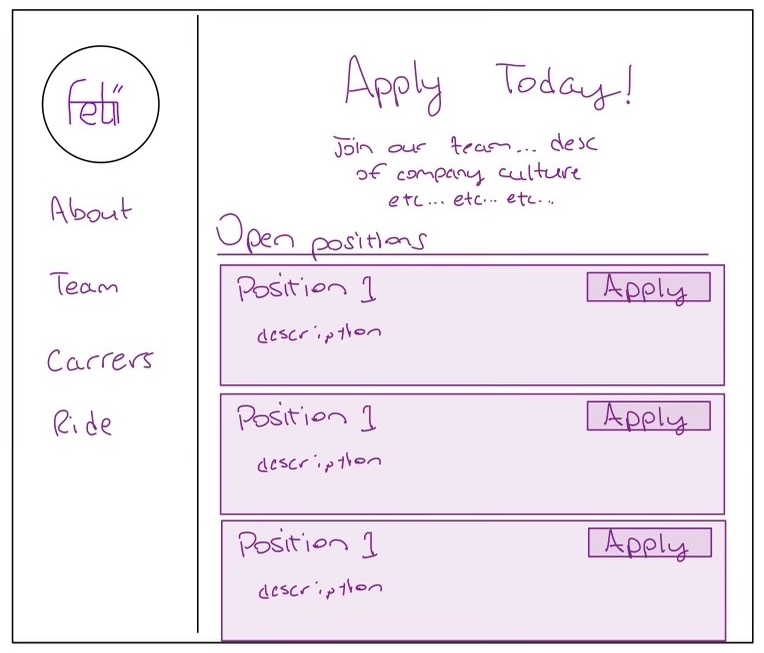 fetii
About
Team
Carrers
Ride
Apply Today!
Join our team... desc
of company culture
etc... etc... etc...
Open positions
Position 1
Apply
description
Position 1
Apply
description
Position 1
Apply
description